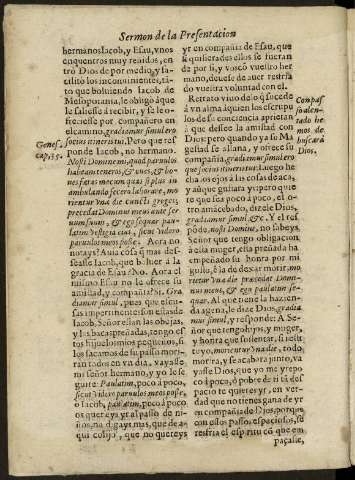 Sermon de la Presentacion
hermanos Iacob, y Esau, vnos
enquentros muy reñidos, en
tro Dios de por medio, y fa-
cilitò los inconuinientes, tã-
to que boluiendo Iacob de
Mesopotamia, le obligò áque
le saliesse á recibir, y á le o-
freciesse por compañero en
el camino, gradiamur simul ero
socius itineris tui, Pero que res
ponde Iacob, no hermano.
Nosti Domine mi, quod paruulos
habeam teneros, & oues, & bo-
ues fœtas mecum quas si plus in
ambulando fecero laborare, mo
rientur vna die cuncti greges;
precedat Dominus meus ante ser
uum suum, & ego sequar pau-
latim vestigia eius, sicut videro
paruulos meos posse. Aora no
notays? Auia cosa q̃ mas des-
seasse Iacob, que boluer á la
gracia de Esau? No. Aora el
mismo Esau no le ofrece la
amistad, y compañia? Si. Gra
diamur simul, pues que escu-
sas impertinentes son estas de
Iacob, Señor estan las obejas,
y las bacas preñadas, tengo es
tos hijuelos mios pequeños, si
los sacamos de su passo mori-
ran todos en vn dia, vayasse
mi señor hermano, y yo le se
guire: Paulatim, poco à poco,
sicut videro paruulos meos posse,
o Iacob, paulatim, poco à poco
os quereys yr al passo de ni-
ños, na digays mas, que de a-
qui colijo, que no quereys
Genes.
cap. 33.
yr en compañia de Esau, que
si quisierades ellos se fueran
de por si, y vos cõ vuestro her
mano, deuese de auer resfria
do vuestra voluntad con el.
Retrato viuo de lo q̃ sucede
á vn alma à quien los escrupu
los de su conciencia aprietan
à que dessee la amistad con
Dios pero quando ya su Ma
gestad se aliana, y ofrece su
compañia, gradiamur simul ero
que socius itineris tui, luego he
cha los ojos à las cosas de acà,
y aũque quitara yr ipero quie
te que sea poco à poco, el o-
tro amãcebado, dizele Dios,
gradiamur simul, &c. Y el res
põde, nosti Domine, no sabeys
Señor que tengo obligacion
à essa muger, esta preñada ha
empeñado su honra por mi
gusto, è la de dexar morir, mo
rietur vna die præcedat Domi-
nus meus, & ego paulatim se-
quar. Al que tiene la hazien-
da agena, le dize Dios, gradia
mur simul, y responde: A Se-
ñor que tengo hijos, y muger,
y honra que sustentar, si resti-
tuyo, morientur vna die, todo
morira, y se acabara junto, va
yasse Dios, que yo me yre po
co à poco, ò pobre de ti tã des
pacio te quieres yr, en ver-
dad que no tienes gana de yr
en compañia de Dios, porque
con essos passos espaciosos, se
resfria el espiritu cõ que em
paçaste,
Compas
so alen-
tado he
mos de
buscar à
Dios.